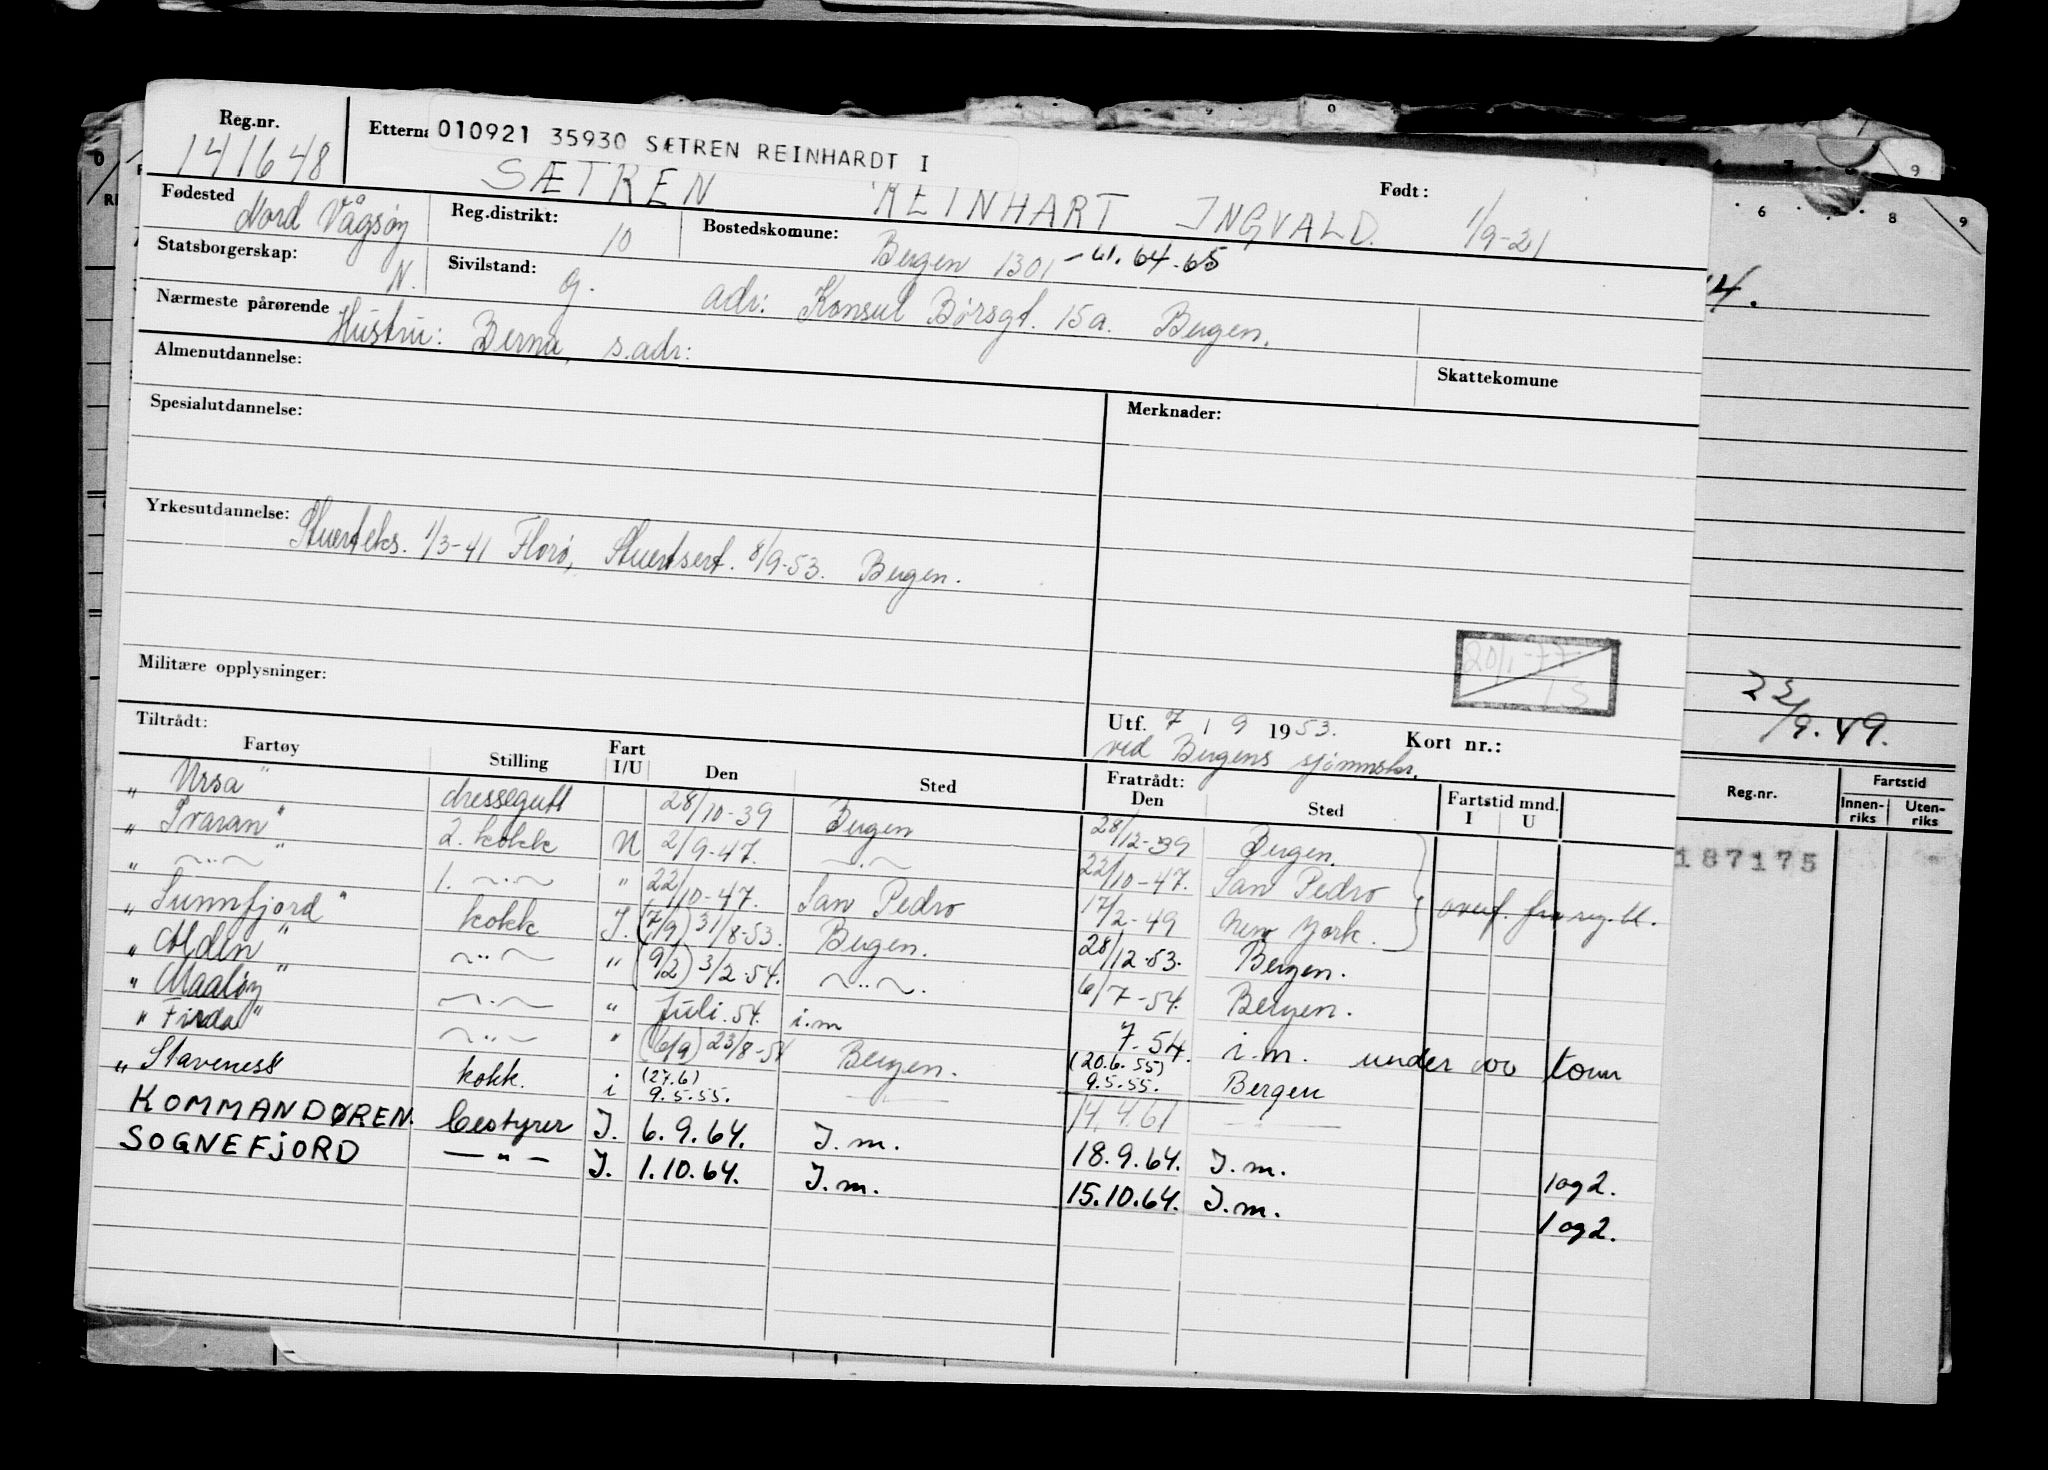 Reg.nr. 141648
Etterna 010921 35930 SÆTREN REINHARDT I
SÆTREN REINHART INGVALD.
Født: 1/9-21
Fødested Nord Vågsøy
Reg.distrikt: 10
Bostedskomune: Bergen 1301 - 61.64.65
Statsborgerskap: N.
Sivilstand: g.
adr: Konsul Børsgt. 15a. Bergen.
Nærmeste pårørende Hustru: Berna, s.adr:
Almenutdannelse:
Skattekomune
Spesialutdannelse:
Merknader:
Yrkesutdannelse: Stuerteks. 1/3-41 Florø, Stuertsert. 8/9-53. Bergen.
20/1-77
Militære opplysninger:
Utf. 7 / 9 1953. Kort nr.:
ved Bergens sjømnsktr.
Tiltrådt: Fratrådt:
Fartøy Stilling Fart I/U Den Sted Den Sted Fartstid mnd. I U
" Ursa " dressegutt 28/10-39 Bergen 28/12-39 Bergen.
" Tvaran " 2. kokk U 2/9-47. —"— 22/10-47. San Pedro
" —"— " 1. —"— " 22/10-47. San Pedro 17/2-49 New York. overf. fra reg.bl.
" Sunnfjord " kokk I. (7/9) 31/8-53. Bergen. 28/12-53. Bergen.
" Alden " —"— " (9/2) 3/2-54. —"—. 6/7-54. Bergen.
" Maaløy " —"— " Juli.54. i.m 7.54. i.m. under 100 tonn
" Firda " —"— " (6/9) 23/8-54 Bergen. (20.6.55) 9.5.55. Bergen
" Staveness kokk. i (27.6) 9.5.55. —"— 14.4.61 —"—
KOMMANDØREN. bestyrer I. 6.9.64. I.m. 18.9.64. I.m. 1og2.
SOGNEFJORD —"— I. 1.10.64. I.m. 15.10.64. I.m. 1og2.
6 8 9
4.
22/9.49.
Reg.nr. Fartstid
Innen-riks Uten-riks
187175